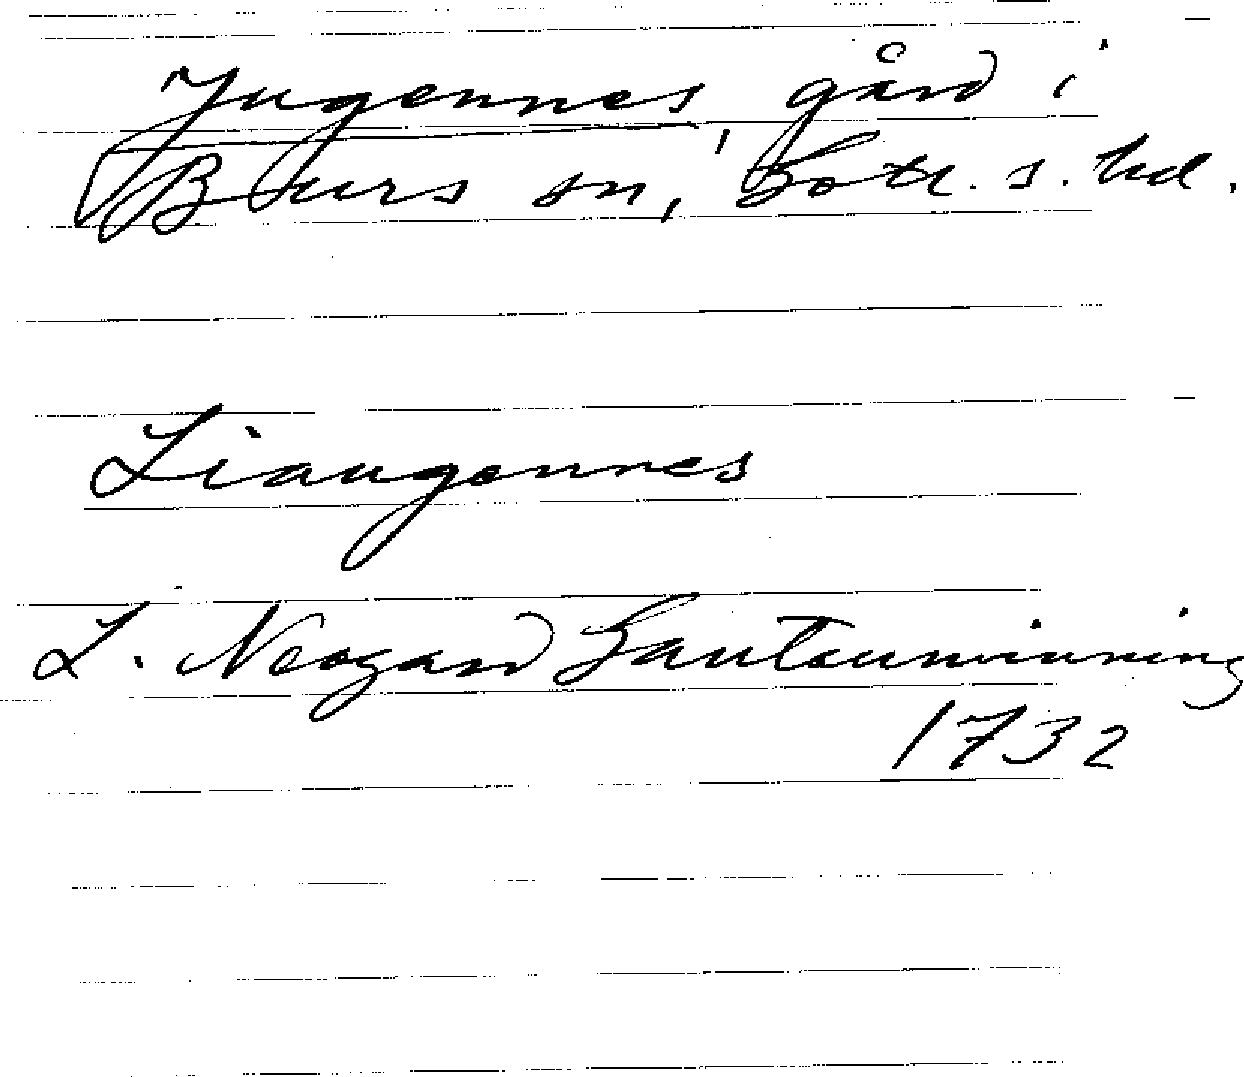 Jugennes, gård i
Burs sn, Gotl. s. hd.
Liaugennes
L. Neogard Gautauminning
1732